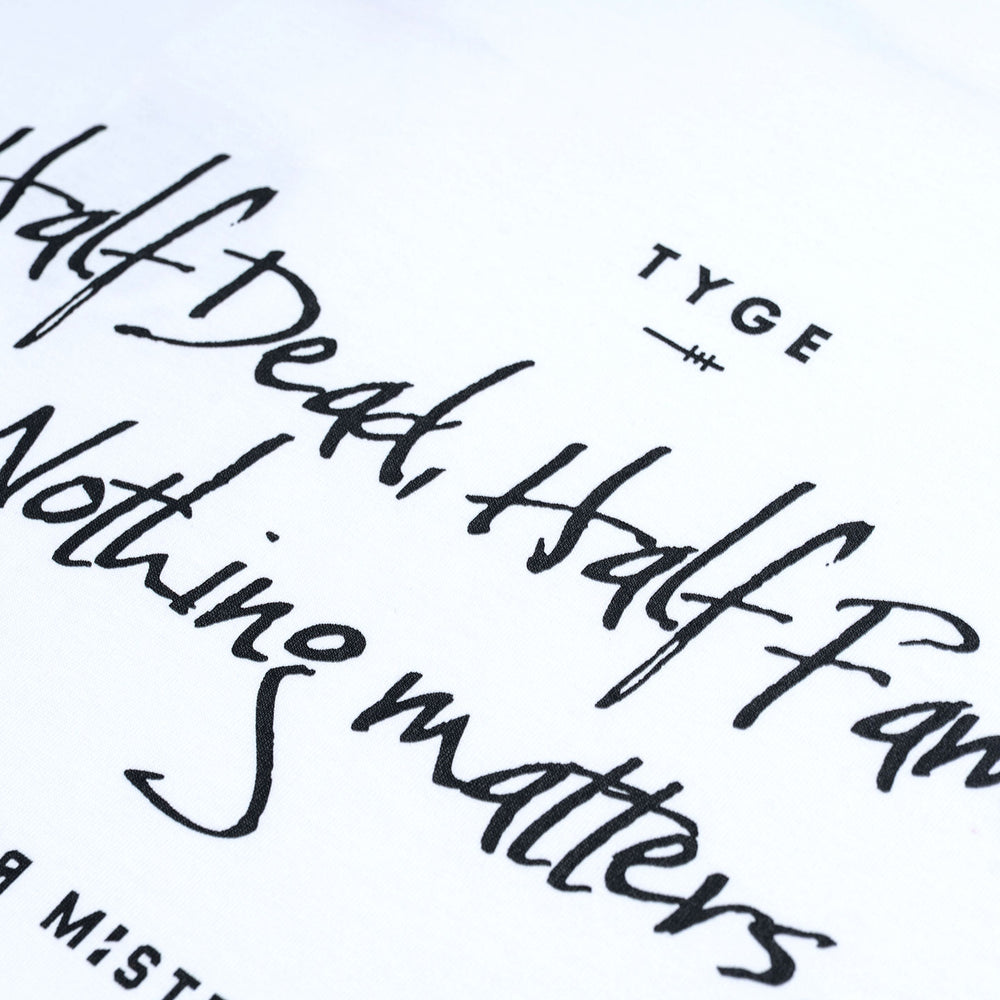 TYGE
Half Dead, Half Fam
Nothing matters
ЯMiST